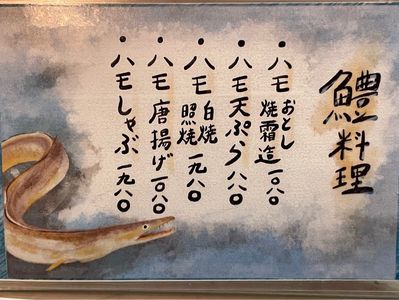 鱧料理
・ハモ おとし 焼霜造 一〇八〇
・ハモ天ぷら 一〇八〇
・ハモ 白焼 照焼 一九八〇
・ハモ唐揚げ 一〇八〇
・ハモしゃぶ 一九八〇